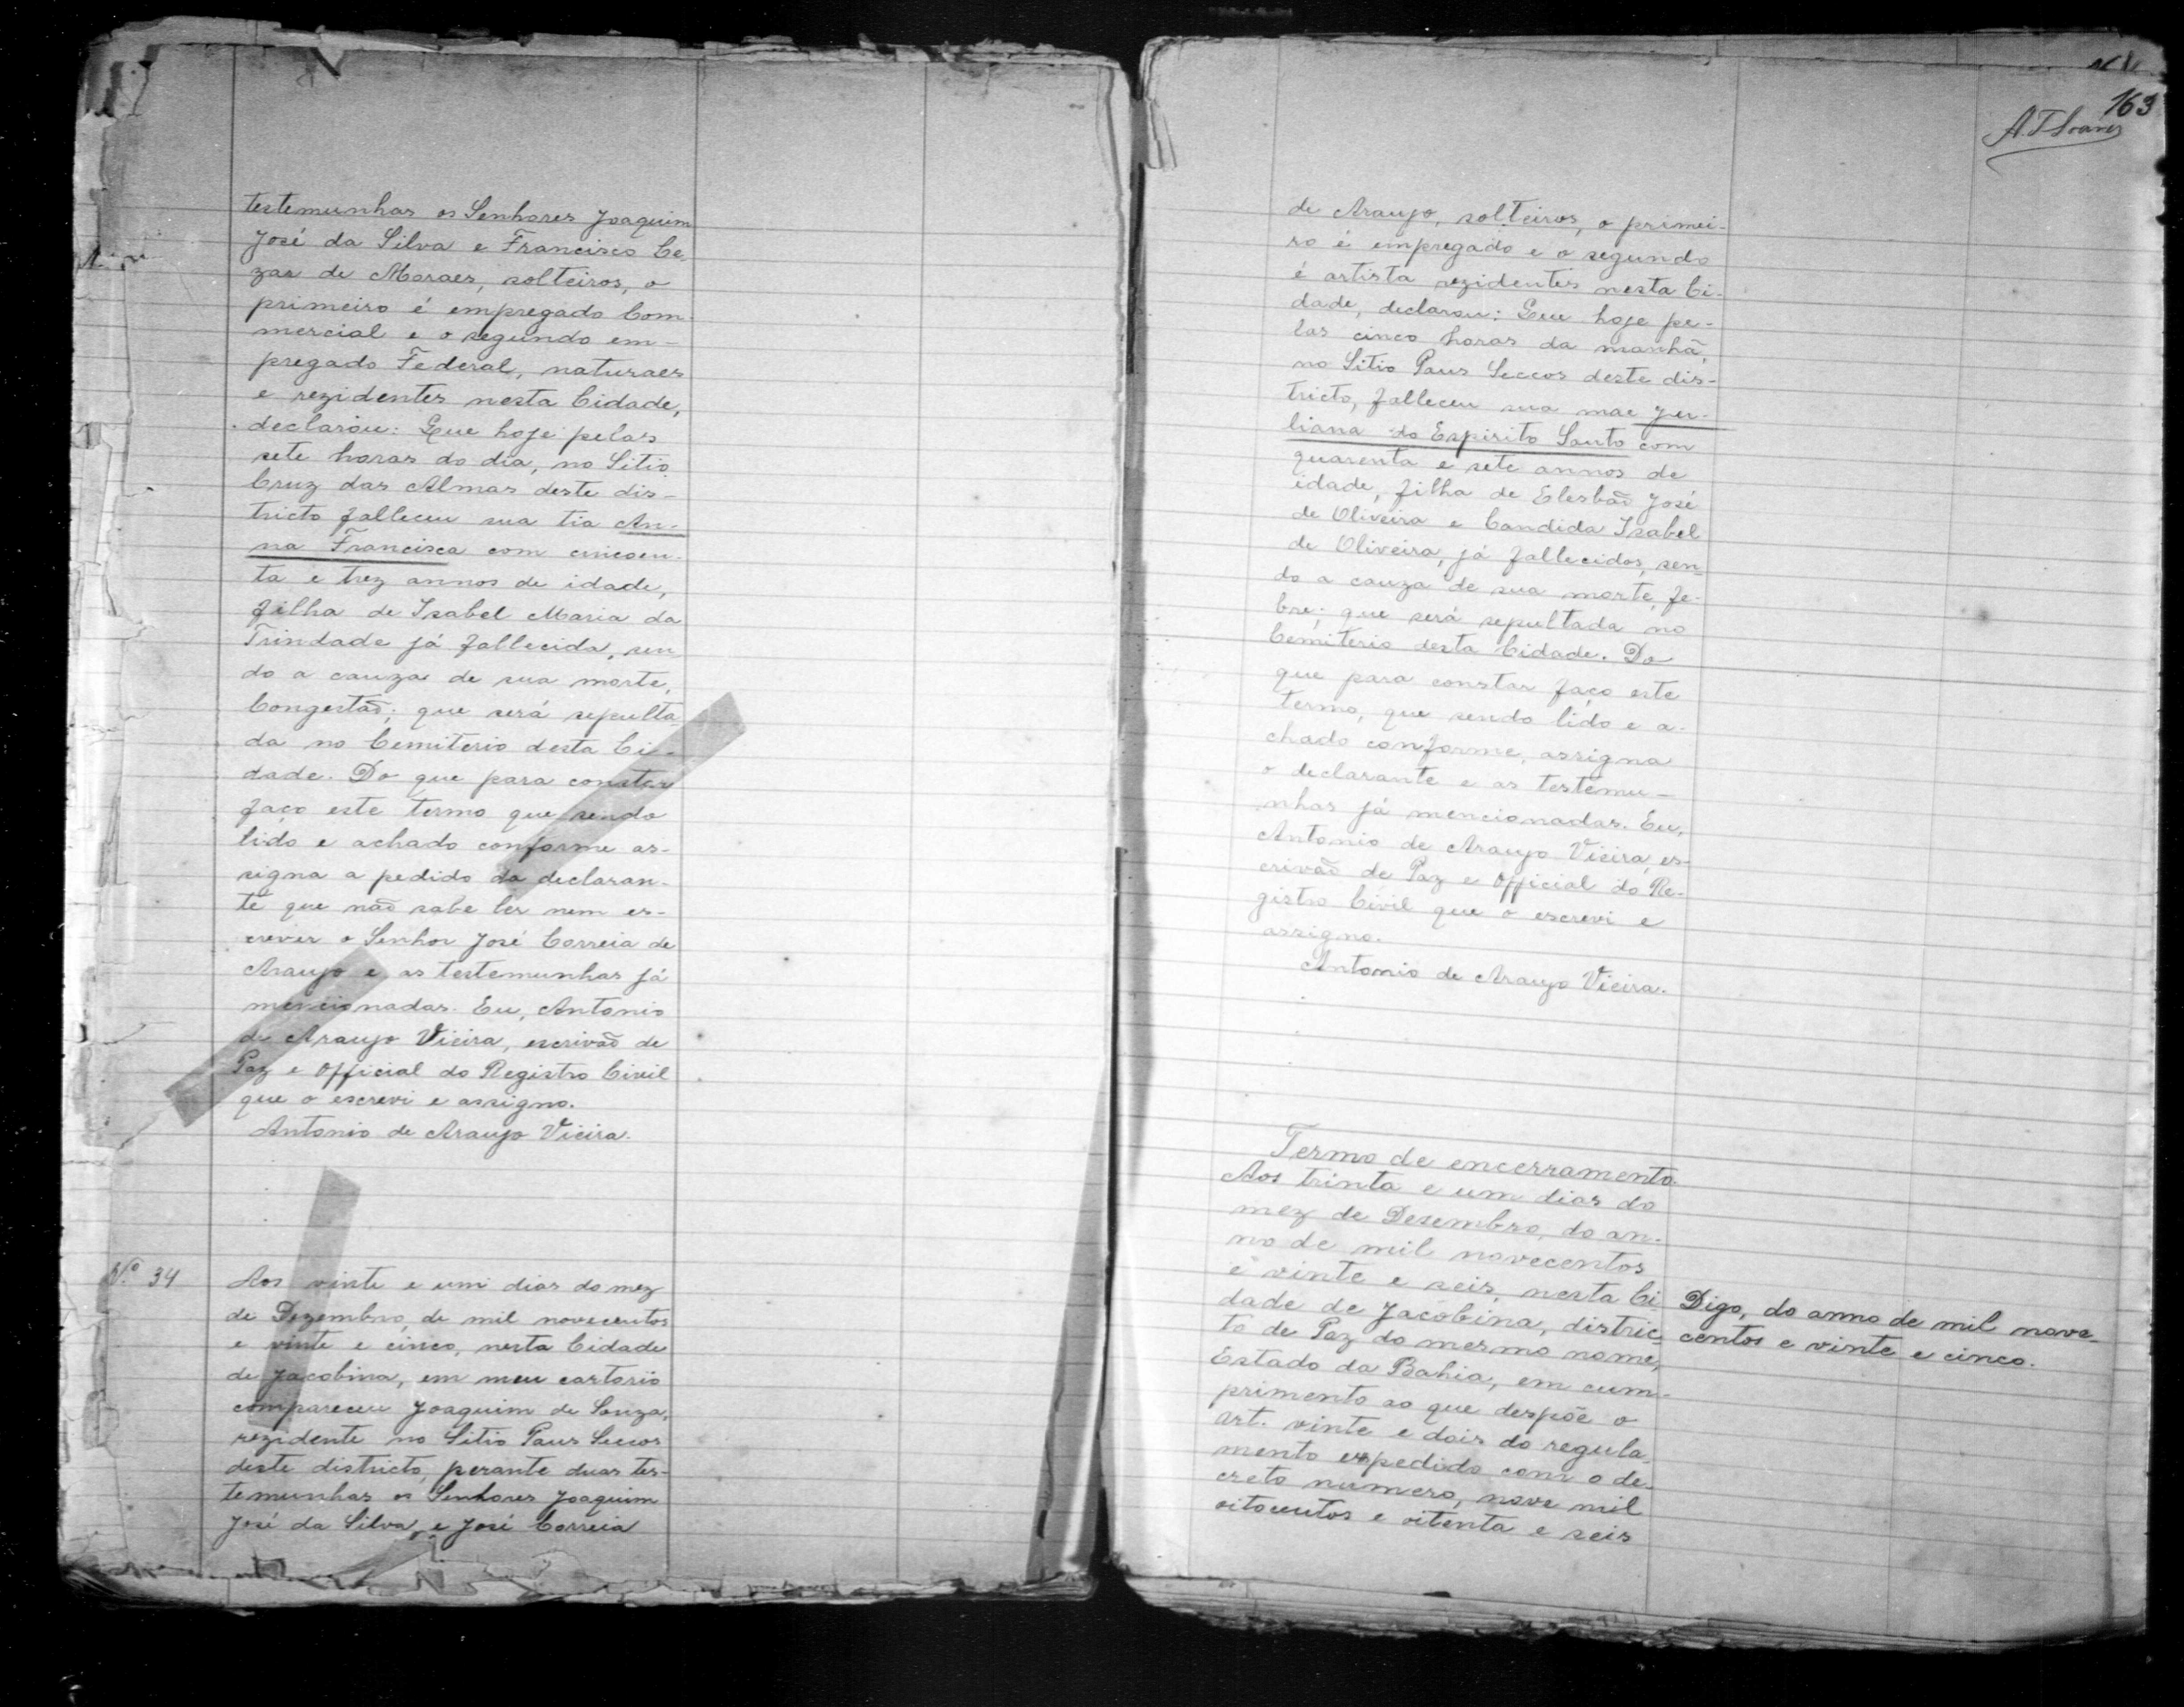 testemunhas os Senhores Joaquim
José da Silva e Francisco Ce-
zar de Moraes, solteiros, o
primeiro é empregado Com-
mercial e o segundo em-
pregado Federal, naturaes
e rezidentes nesta Cidade,
declarou: Que hoje pelas
sete horas do dia, no Sitio
Cruz das Almas deste dis-
tricto falleceu sua tia An-
na Francisca com cincoen-
ta e trez annos de idade,
filha de Isabel Maria da
Trindade já fallecida, sen
do a cauza de sua morte,
Congestão; que será sepulta
da no Cemiterio desta Ci-
dade. Do que para constar
faço este termo que sendo
lido e achado conforme as-
signa a pedido da declaran-
te que não sabe ler nem es-
crever o Senhor José Correia de
Araujo e as testemunhas já
mencionadas. Eu, Antonio
de Araujo Vieira, escrivão de
Paz e Official do Registro Civil
que o escrevi e assigno.
Antonio de Araujo Vieira.
N.º 34
Aos vinte e um dias do mez
de Dezembro, de mil novecentos
e vinte e cinco, nesta Cidade
de Jacobina, em meu cartorio
compareceu Joaquim de Souza,
rezidente no Sitio Paus Seccos
deste districto, perante duas tes-
temunhas os Senhores Joaquim
José da Silva e José Correia
163
A. T. Soares
de Araujo, solteiros, o primei-
ro é empregado e o segundo
é artista rezidentes nesta Ci-
dade, declarou: Que hoje pe-
las cinco horas da manhã,
no Sitio Paus Seccos deste dis-
tricto, falleceu sua mae Jer-
liana do Espirito Santo com
quarenta e sete annos de
idade, filha de Elesbão José
de Oliveira e Candida Isabel
de Oliveira, já fallecidos, sen-
do a cauza de sua morte, fe-
bre; que será sepultada no
Cemiterio desta Cidade. Do
que para constar faço este
termo, que sendo lido e a-
chado conforme, assigna
o declarante e as testemu-
nhas já mencionadas. Eu,
Antonio de Araujo Vieira, es-
crivão de Paz e Official do Re-
gistro Civil que o escrevi e
assigno.
Antonio de Araujo Vieira.
Termo de encerramento.
Aos trinta e um dias do
mez de Desembro, do an-
no de mil novecentos
e vinte e seis, nesta Ci-
dade de Jacobina, distric-
to de Paz do mesmo nome,
Estado da Bahia, em cum-
primento ao que despõe o
art. vinte e dois do regula-
mento expedido com o de-
creto numero, nove mil
oitocentos e oitenta e seis
Digo, do anno de mil nove-
centos e vinte e cinco.